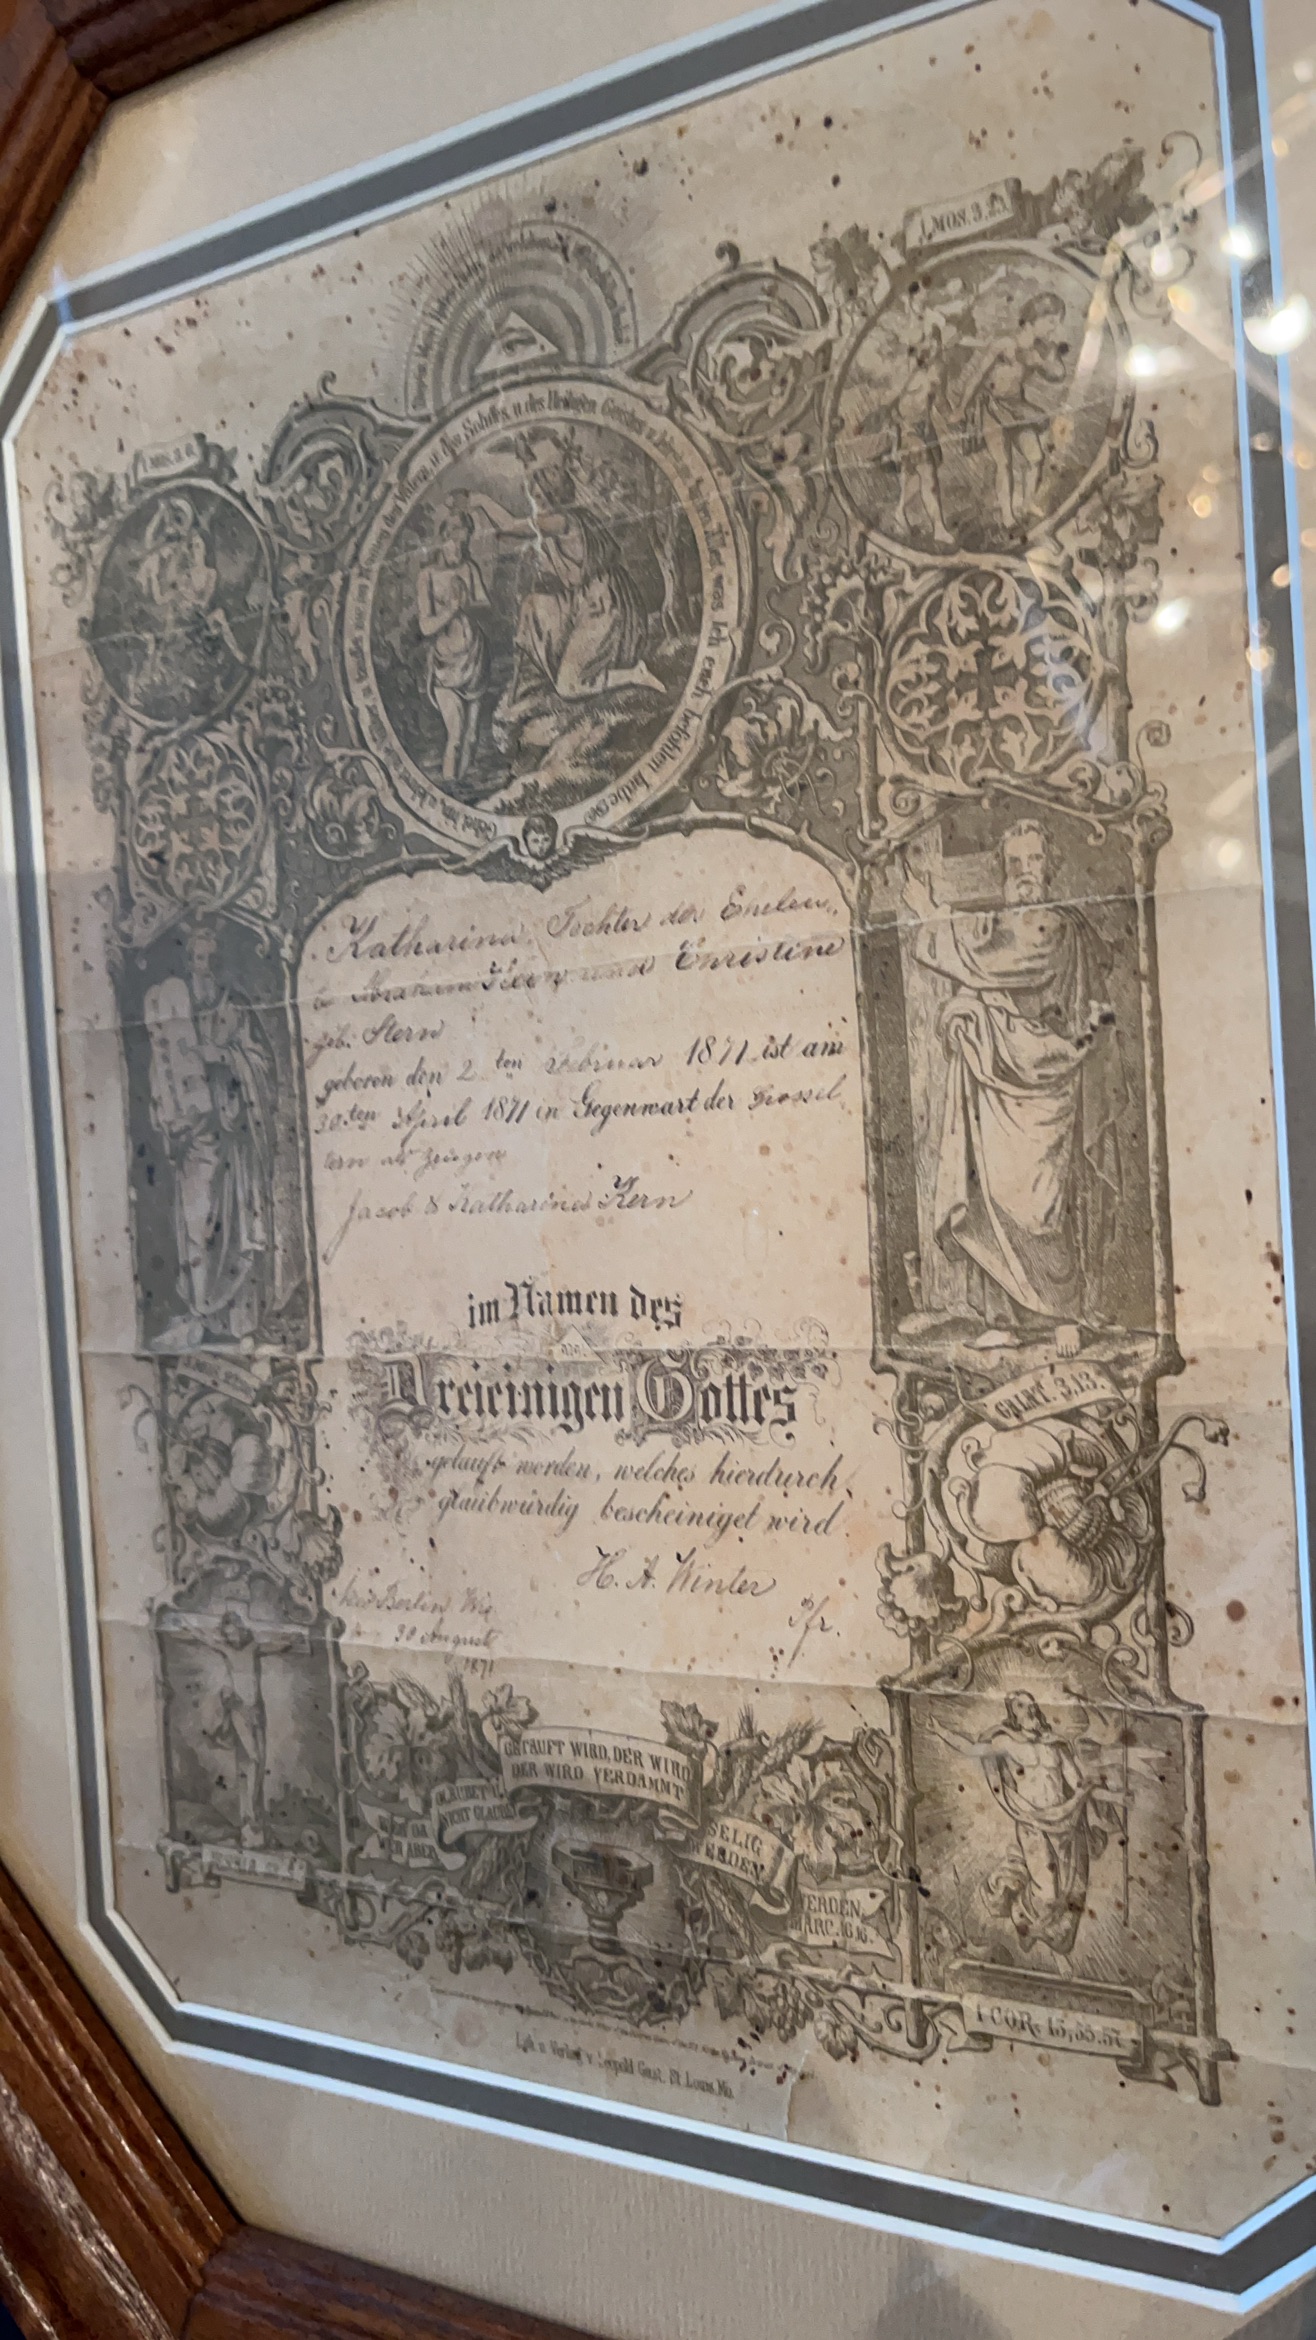 1. MOS. 3, 23.
1. MOS. 3. 6.
des Vaters, u. des Sohnes, u. des Heiligen Geistes, u. was Ich euch befohlen habe
Katharina, Tochter der Ehelen.
Abraham Kern und Christine
geb. Stern
geboren den 2 ten Februar 1871 ist am
30.ten April 1871 in Gegenwart der Grossel
tern als Zeugen
Jacob & Katharina Kern
im Namen des
Dreieinigen Gottes
getauft worden, welches hierdurch
glaubwürdig bescheiniget wird.
H. A. Winter
Pfr.
Berlin, Wis
30 August
1871
GALAT. 3, 13.
GETAUFT WIRD, DER WIRD
DER WIRD VERDAMMT
GLAUBET U.
NICHT GLAUBT
WER DA
WER ABER
SELIG
WERDEN
WERDEN.
MARC. 16, 16.
1 COR. 15, 55. 57.
Lith. u. Verlag v. Leopold Gast, St. Louis, Mo.